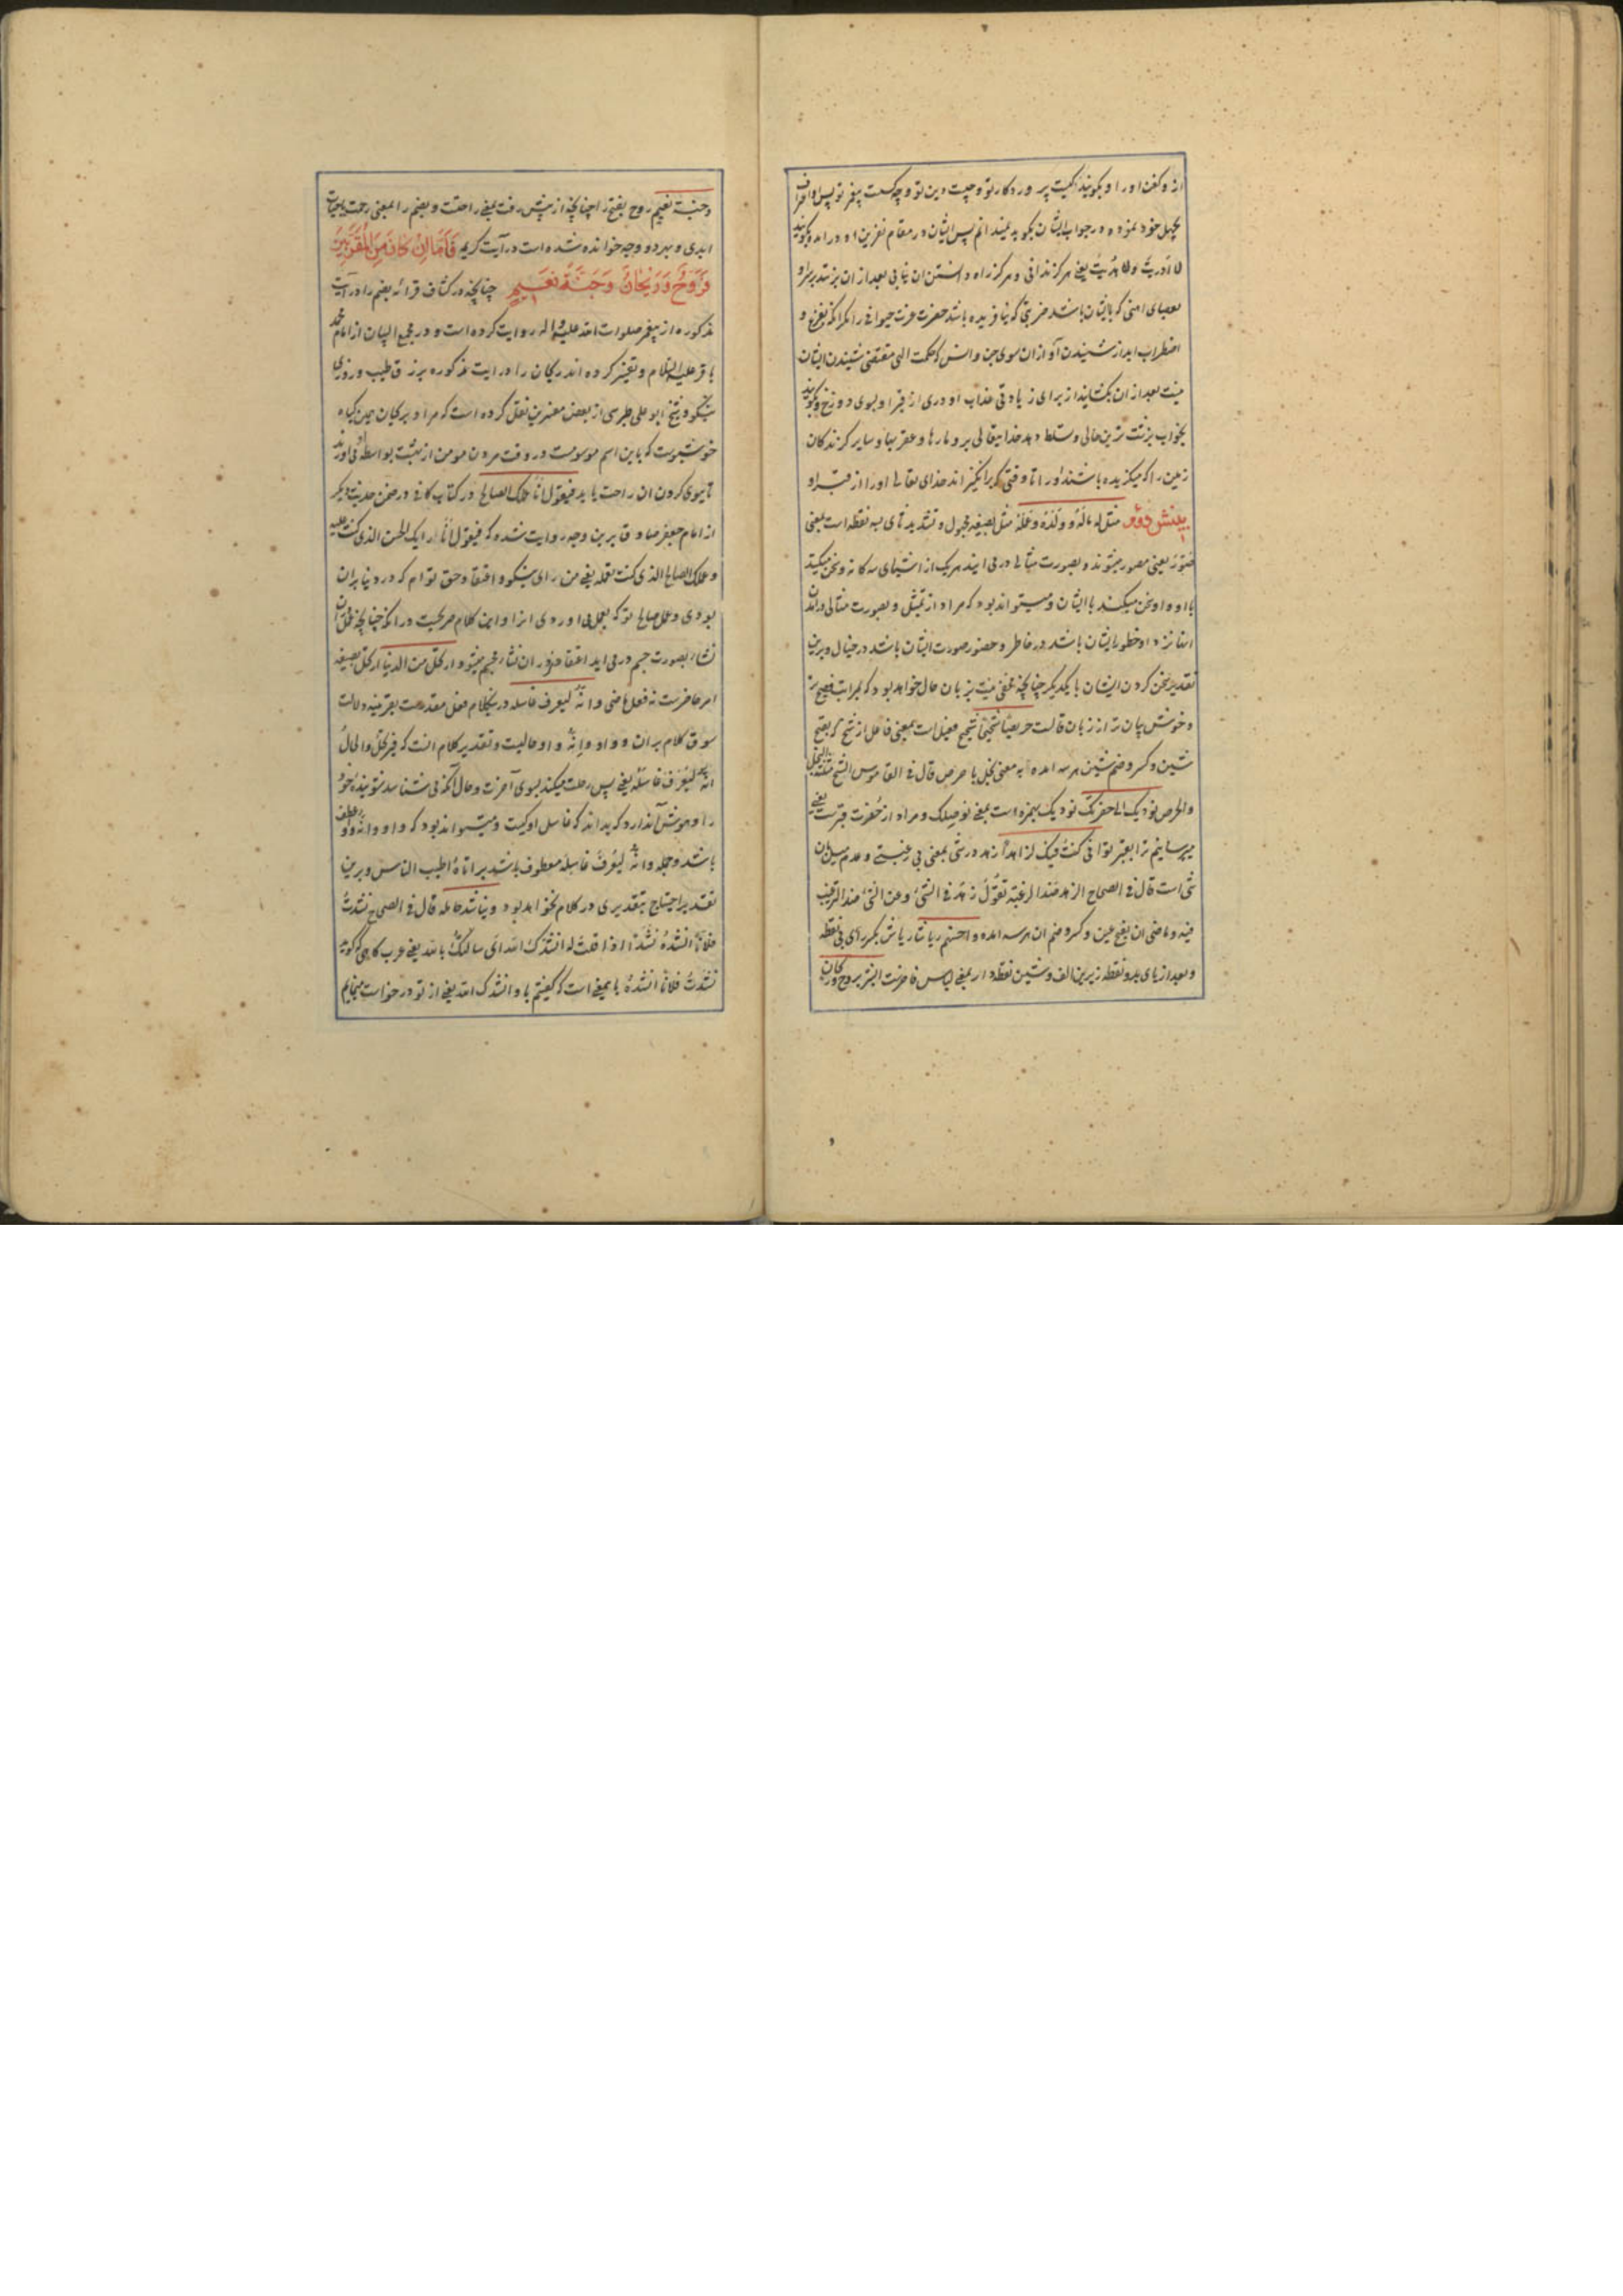 از و کفن او را و بگویند کیست پروردکار تو و چیست دین تو و چه کسست پیغمبر تو پس او اعتراف
بجهل خود نموده در جواب ایشان بگوید نمیدانم پس ایشان در مقام نفرین او درامده گویند
لا دریت ولا هدیت یعنی هرگز ندانی و هرگز راه دانستن ان نیابی بعد از ان بزنند بر سر او
بعصای اهنی که با ایشان باشد ضربتی که نیافریده باشد حضرت عزت حیوانی را مکر انکه بفزع و
اضطراب اید از شنیدن آواز ان سوی جن و انس که حکمت الهی مقتضی نشنیدن ایشان
نیست بعد از ان بکشایند از برای زیادتی عذاب او دری از قبر او بسوی دوزخ و گویند
بخواب بزشت ترین حالی و مسلط دهد خدایتعالی برو مارها و عقربها و سایر گزندکان
زمین را که میگزیده باشند او را تا وقتی که برانگیزاند خدای تعالی او را از قبر او
بینش دوم مثل له ماله و ولده و عمله مثل بصیغه مجهول و تشدید ثای سه نقطه است بمعنی
صور یعنی مصور میشوند و بصورت مثالی در می ایند هر یک از اشیای سه کانه و سخن میکنند
با او و او سخن میکند با ایشان و میتواند بود که مراد از تمثل و بصورت مثالی در امدن
اینها نزد او خطور ایشان باشد در خاطر و حضور صورت ایشان باشد در خیال و برین
تقدیر سخن کردن ایشان با یکدیگر چنانچه مخفی نیست بزبان حال خواهد بود که بمراتب فصیح تر
و خوش بیان تر از زبان قالست حریصا شحیحا شحیح فعیل است بمعنی فاعل از شح که بفتح
شین و کسر و ضم شین هر سه امده به معنی بخل با حرص قال فی القاموس الشح مثلثة البخل
والحرص نودیک الی حفرتک نودیک بهمزه است بمعنی نوصلک و مراد از حفرت قبرست یعنی
میرسانیم ترا بقبر تو انی کنت فیک لزاهدا زهد در شی بمعنی بی رغبتی و عدم میل بان
شی است قال فی الصحاح الزهد ضد الرغبة تقول زهد فی الشی و عن الشی ضد الترغیب
فیه و ماضی ان بفتح عین و کسر و ضم ان هر سه امده و احسنهم ریاشا ریاش بکسر رای بی نقطه
و بعد از یای بدو نقطه زیرین الف و شین نقطه دار بمعنی لباس فاخرست ابشر بروح و ریحان
وجنة نعیم روح بفتح را چنانچه از پیش رفت بمعنی راحتست و بضم را بمعنی رحمت یا حیات
ابدی و بهر دو وجه خوانده شده است در آیت کریم فَأَمَّا إِن كَانَ مِنَ الْمُقَرَّبِينَ
فَرَوْحٌ وَرَيْحَانٌ وَجَنَّةُ نَعِيمٍ چنانچه در کشاف قرائه بضم را در آیت
مذکوره از پیغمبر صلوات الله علیه و اله روایت کرده است و در مجمع البیان از امام محمد
باقر علیه السلام و تفسیر کرده اند ریحان را در ایت مذکوره برزق طیب و روزی
نیکو و شیخ ابو علی طبرسی از بعض مفسرین نقل کرده است که مراد بریحان همین گیاه
خوشبوست که باین اسم موسومست در وقت مردن مومن از بهشت بواسطه او می اورند
تا ببوی کردن ان راحت یابد فیقول انا عملک الصالح در کتاب کافی در ضمن حدیث دیگر
از امام جعفر صادق برین وجه روایت شده که فیقول انا رایک الحسن الذی کنت علیه
و عملک الصالح الذی کنت تعمله یعنی من رای نیکو و اعتقاد حق توام که در دنیا بران
بودی و عمل صالح تو که بعمل می اوردی انرا و این کلام صریحست در انکه چنانچه عمل در ان
نشاه بصورت جسم در می اید اعتقاد نیز در ان نشاه مجسم میشود ارتحل من الدنیا ارتحل بصیغه
امر حاضرست نه فعل ماضی و انه لیعرف غاسله درینکلام فعل مقدرست بقرینه دلالت
سوق کلام بر ان و واو و انه واو حالیست و تقدیر کلام انست که فیرتحل والحال
انه لیعرف غاسله یعنی پس رحلت میکند بسوی آخرت و حال آنکه می شناسد شوینده خود
را و هوش آندارد که بداند که غاسل او کیست و میتواند بود که واو وانه واو عطف
باشد و جمله وانه لیعرف غاسله معطوف باشد بر اتاه اطیب الناس و برین
تقدیر احتیاج بتقدیری در کلام نخواهد بود و یناشد حامله قال فی الصحاح نشدت
فلانا انشده نشدا اذا قلت له انشدک الله ای سالتک بالله یعنی عرب کاهی که گوید
نشدت فلانا انشده باینمعنی است که گفتم با او انشدک الله یعنی از تو درخواست مینمایم